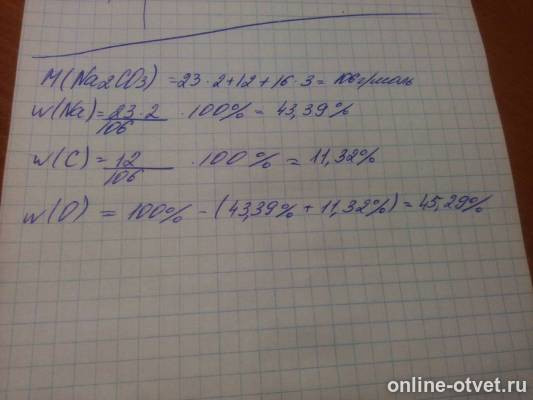 M(Na2CO3) = 23·2+12+16·3 = 106 г/моль
w(Na) = 23·2/106 · 100% = 43,39%
w(C) = 12/106 · 100% = 11,32%
w(O) = 100% - (43,39% + 11,32%) = 45,29%
online-otvet.ru